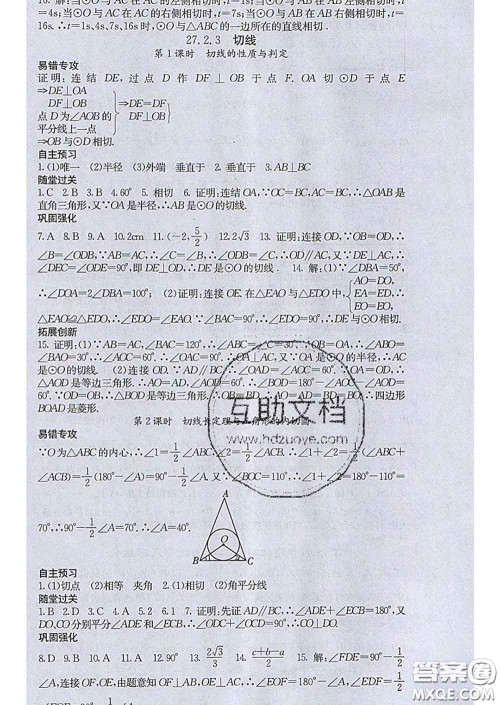 4s;当⊙O与AC在AC的右侧相切时,t=7s;当⊙O与AB在AB右侧相切时,t=
16s. ∴t=1s、4s、7s、16s时,⊙O与△ABC的一边所在的直线相切.
27.2.3 切线
第1课时 切线的性质与判定
易错专攻
证明:连结 DE,过点 D 作 DF⊥OB 于点 F. OA 切⊙D 于点 E
⇒DE⊥OA
DF⊥OB ⇒DE=DF
点D为∠AOB的 DF⊥OB
平分线上一点
⇒OB与⊙D相切.
自主预习
1.(1)唯一 (2)半径 (3)外端 垂直于 2.垂直于 3.AB⊥BC
随堂过关
1.C 2.B 3.B 4.60° 5.相切 6.证明:连结OA,∵OC=BC,AC=OC,∴△OAB是
直角三角形,又∵OA是半径,∴AB是⊙O的切线.
巩固强化
7.A 8.B 9.A 10.2cm 11.(-2,5/2) 12.2√3 13.证明:连接OD,∵OB=OD,∴
∠B=∠ODB,∵AB=AC,∴∠C=∠B,∴∠ODB=∠C,∴OD∥AC,又∵DE⊥AC,∴
∠DEC=∠ODE=90°,即DE⊥OD,∴DE是⊙O的切线. 14.解:(1)∵∠DBA=50°,
∴∠DOA=2∠DBA=100°; (2)证明:连接OE.在△EAO与△EDO中,{AO=DO,
EA=ED,
EO=EO,
∴△EAO≌△EDO,∴∠EDO=∠EAO.∵∠BAC=90°,∴∠EDO=90°,∴DE与⊙O相切.
拓展创新
15.证明:(1)∵AB=AC,∠BAC=120°,∴∠ABC=∠C=30°.∵OA=OB,∴∠ABO=
∠BAO=30°,∴∠AOC=60°,∴∠OAC=90°,∴OA⊥AC,又∵OA是⊙O的半径,∴AC
是⊙O的切线. (2)连接OD.∵AD∥BC,∴∠OAD=∠AOC=60°.∵OA=OD,∴
△AOD是等边三角形,
∴△BOD是等边三角形,
BOAD是菱形.
第2课时 切线长定理与三角形的内切圆
易错专攻
∵O为△ABC的内心,∴∠1=1/2∠ABC,∠2=1/2∠ACB,∴∠1+∠2=1/2(∠ABC+
∠ACB)=1/2(180°-∠A)=90°-1/2∠A.∵∠BOC=110°,∴∠1+∠2=180°-110°=
70°,∴90°-1/2∠A=70°.∴∠A=40°.
A
O
B C
自主预习
1.(1)切点 (2)相等 夹角 2.(1)相切 (2)角平分线
随堂过关
1.B 2.D 3.C 4.A 5.2 6.1 7.证明:先证AD∥BC,∴∠ADE+∠ECB=180°,又
DO,CO分别平分∠ADE和∠ECB,∴∠ODC+∠OCD=90°,∴∠COD=90°.
巩固强化
8.D 9.B 10.A 11.A 12.90° 13.2√3/3 14.(c+b-a)/2 15.解:∠FDE=90°-1/2
∠A,连接OF,OE,由题意知OF⊥AB,OE⊥AC,∴∠FOE+∠A=180°,∴∠FOE=180°-
互助文档
www.hdzuoye.com
答案圈
MXQE.COM